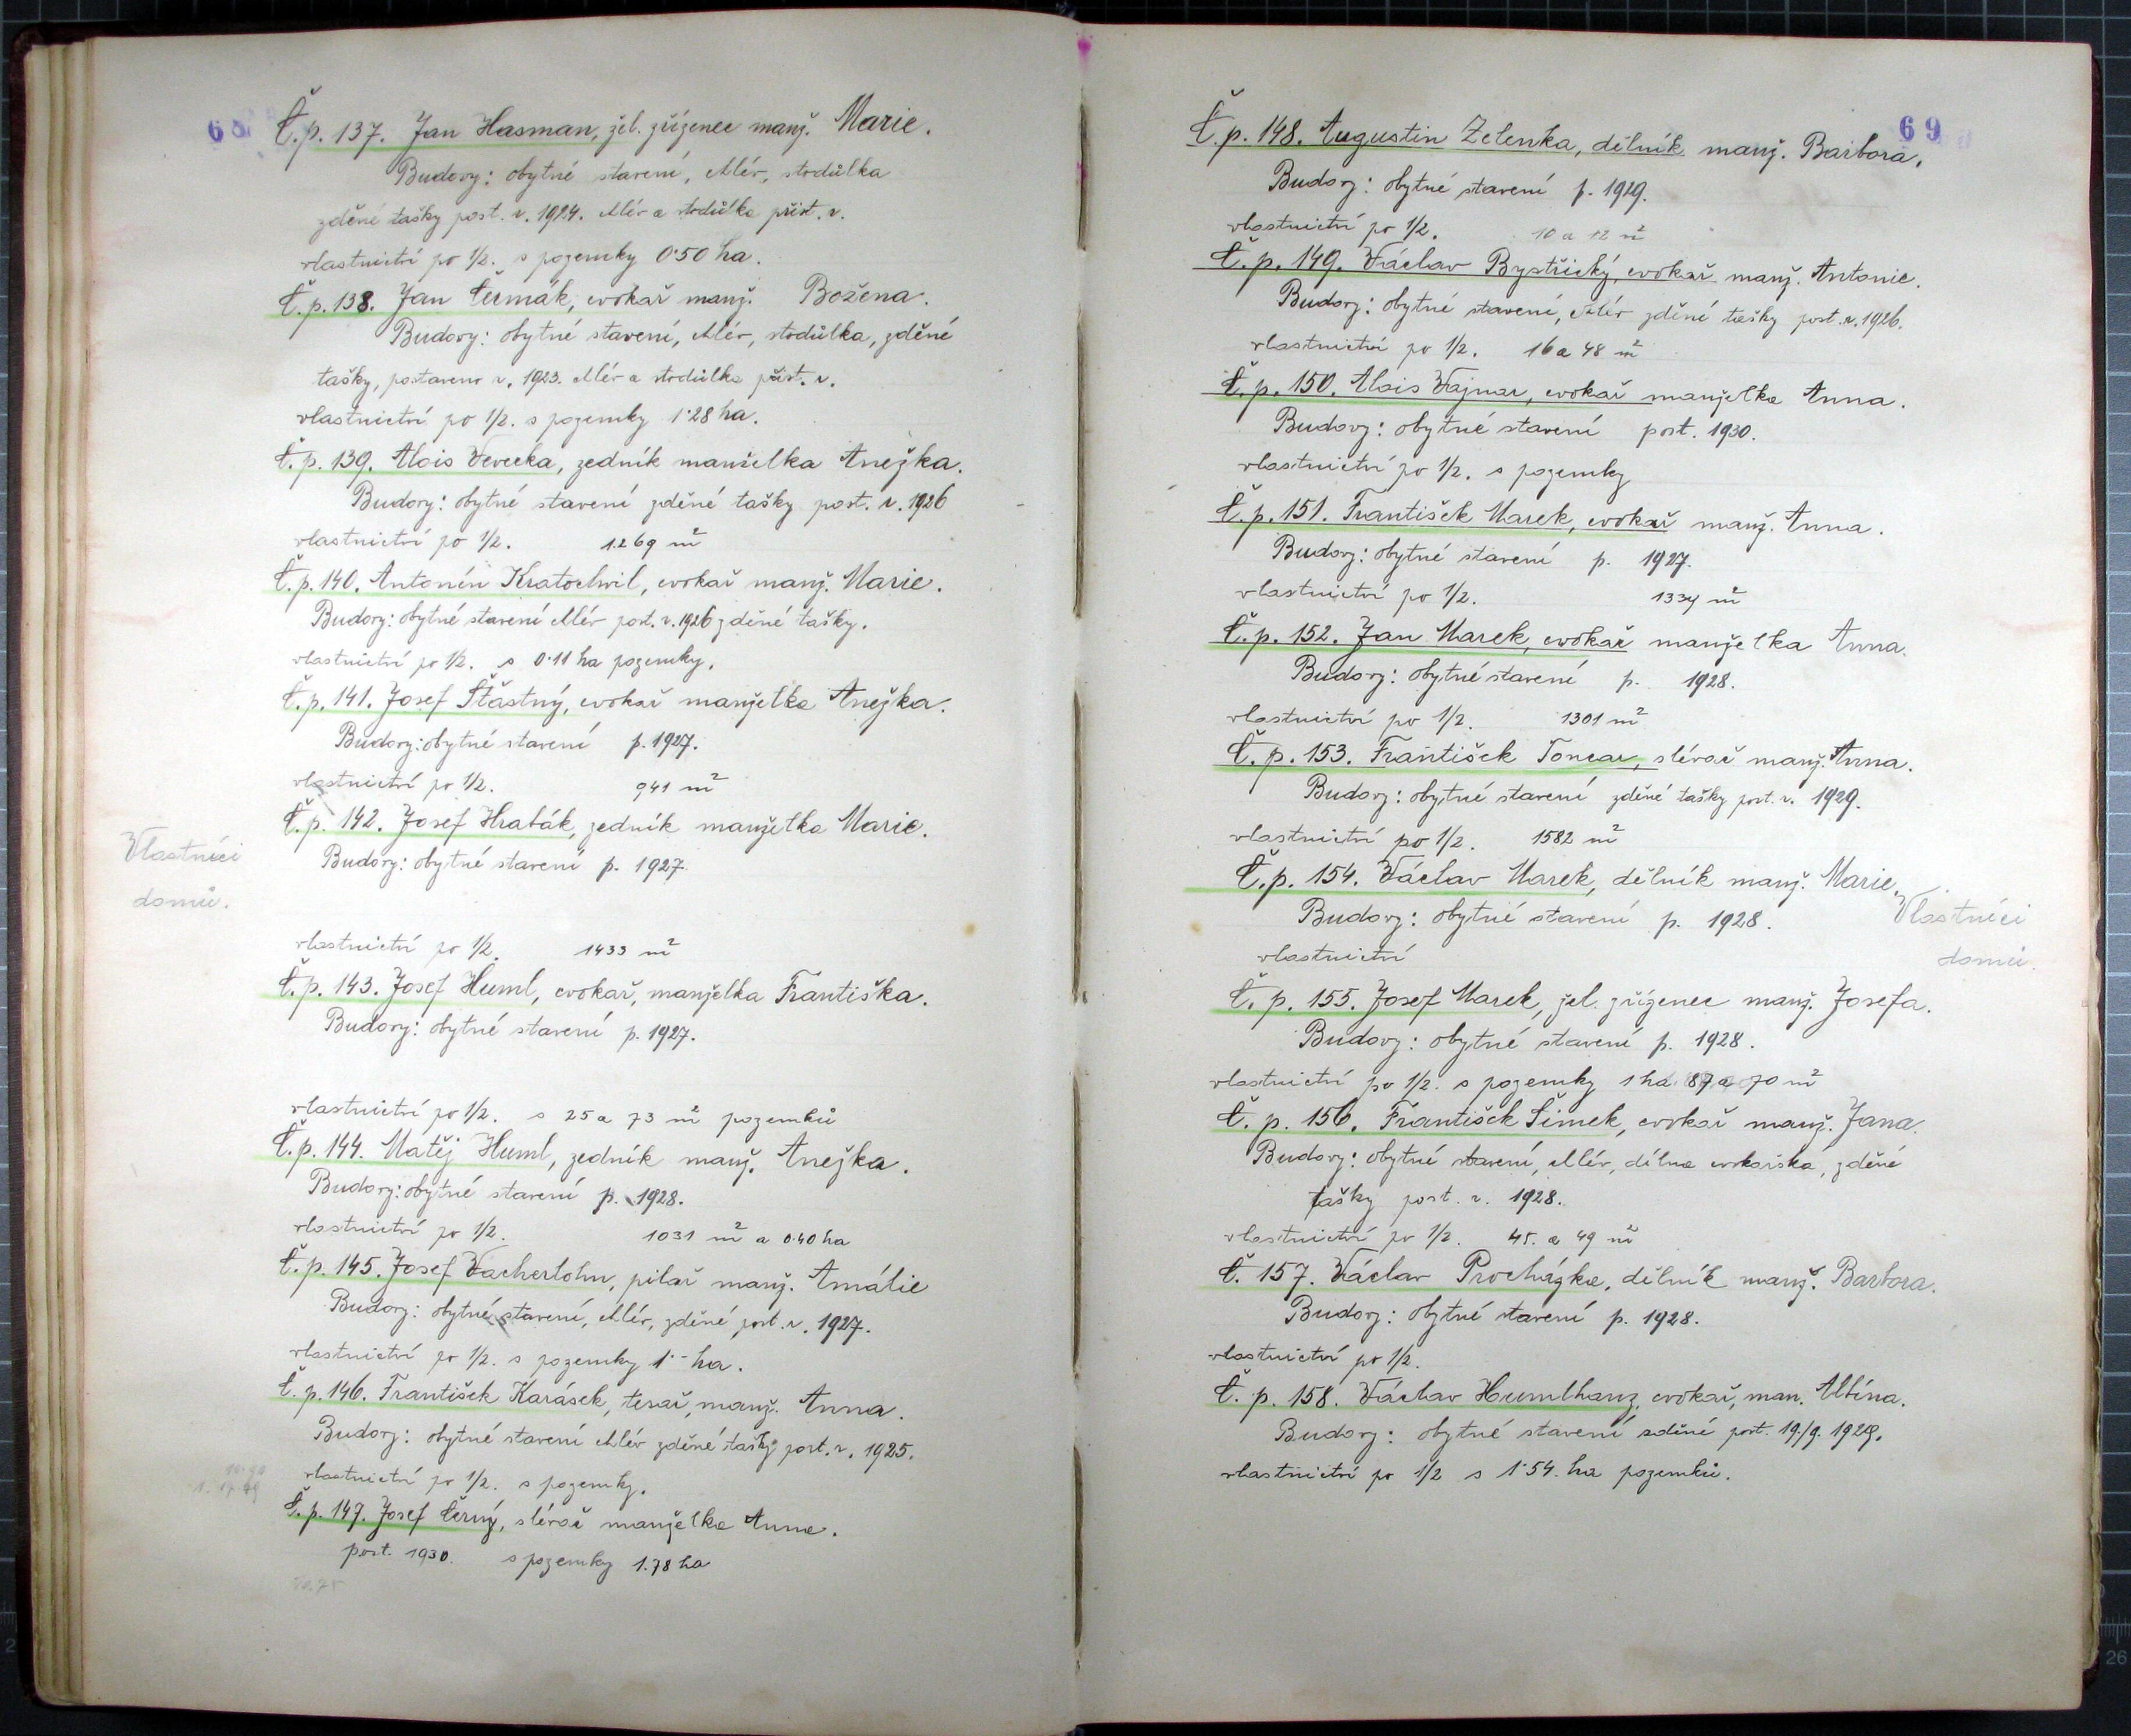 68
Č.p. 137. Jan Hasman, žel. zřízenec manž. Marie.
Budovy: obytné stavení, chlév, stodůlka
zděné tašky post. r. 1924. chlév a stodůlka příst. r.
vlastnictví po 1/2. s pozemky 0·50 ha.
Č.p. 138. Jan Čermák, cvokař manž. Božena.
Budovy: obytné stavení, chlév, stodůlka, zděné
tašky, postaveno r. 1923. chlév a stodůlka příst. r.
vlastnictví po 1/2. s pozemky 1·28 ha.
Č.p. 139. Alois Verecka, zedník manželka Anežka.
Budovy: obytné stavení zděné tašky post. r. 1926
vlastnictví po 1/2. 1.269 m²
Č.p. 140. Antonín Kratochvil, cvokař manž. Marie.
Budovy: obytné stavení chlév post. r. 1926 zděné tašky.
vlastnictví po 1/2. s 0·11 ha pozemky.
Č.p. 141. Josef Šťastný, cvokař manželka Anežka.
Budovy: obytné stavení p. 1927.
vlastnictví po 1/2. 941 m²
Č.p. 142. Josef Hrabák, zedník manželka Marie.
Vlastníci
domů.
Budovy: obytné stavení p. 1927.
vlastnictví po 1/2. 1433 m²
Č.p. 143. Josef Huml, cvokař, manželka Františka.
Budovy: obytné stavení p. 1927.
vlastnictví po 1/2. s 25 a 73 m² pozemků
Č.p. 144. Matěj Huml, zedník manž. Anežka.
Budovy: obytné stavení p. 1928.
vlastnictví po 1/2. 1031 m² a 0·40 ha
Č.p. 145. Josef Wachertohn, pilař manž. Amálie
Budovy: obytné stavení, chlév, zděné post. r. 1927.
vlastnictví po 1/2. s pozemky 1·- ha.
Č.p. 146. František Karásek, tesař, manž. Anna.
Budovy: obytné stavení chlév zděné tašky post. r. 1925.
vlastnictví po 1/2. s pozemky.
Č.p. 147. Josef Černý, slévač manželka Anna.
post. 1930. s pozemky 1.78 ha
69
Č.p. 148. Augustin Zelenka, dělník manž. Barbora.
Budovy: obytné stavení p. 1929.
vlastnictví po 1/2. 10 a 12 m²
Č.p. 149. Václav Bystřický, cvokař manž. Antonie.
Budovy: obytné stavení, chlév zděné tašky post. r. 1926.
vlastnictví po 1/2. 16 a 48 m²
Č.p. 150. Alois Vajnar, cvokař manželka Anna.
Budovy: obytné stavení post. 1930.
vlastnictví po 1/2. s pozemky
Č.p. 151. František Marek, cvokař manž. Anna.
Budovy: obytné stavení p. 1927.
vlastnictví po 1/2. 1334 m²
Č.p. 152. Jan Marek, cvokař manželka Anna.
Budovy: obytné stavení p. 1928.
vlastnictví po 1/2. 1301 m²
Č.p. 153. František Toncar, slévač manž. Anna.
Budovy: obytné stavení zděné tašky post. r. 1929.
vlastnictví po 1/2. 1582 m²
Č.p. 154. Václav Marek, dělník manž. Marie.
Budovy: obytné stavení p. 1928.
Vlastníci
domů.
vlastnictví
Č.p. 155. Josef Marek, žel. zřízenec manž. Josefa.
Budovy: obytné stavení p. 1928.
vlastnictví po 1/2. s pozemky 1 ha 87 a 70 m²
Č.p. 156. František Šimek, cvokař manž. Jana.
Budovy: obytné stavení, chlév, dílna cvokařská, zděné
tašky post. r. 1928.
vlastnictví po 1/2. 45. a 49 m²
Č. 157. Václav Procházka, dělník manž. Barbora.
Budovy: obytné stavení p. 1928.
vlastnictví po 1/2.
Č.p. 158. Václav Humlhanz, cvokař, man. Albína.
Budovy: obytné stavení zděné post. 19./9. 1929.
vlastnictví po 1/2 s 1·54. ha pozemků.